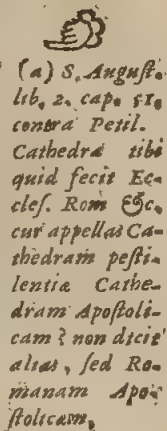 (a) S. Auguſt.
lib. 2. cap. 51.
contra Petil.
Cathedra tibi
quid fecit Ec-
cleſ. Rom &c.
cur appellas Ca-
thedram peſti-
lentiæ Cathe-
dram Apoſtoli-
cam? non dicit
alias, ſed Ro-
manam Apo-
ſtolicam,